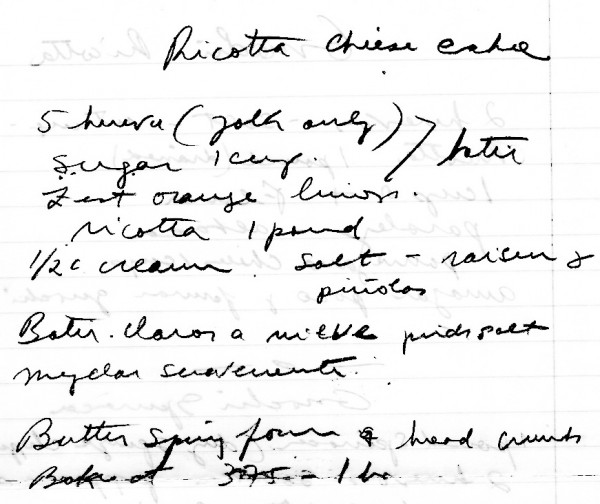 Ricotta cheese cake
5 huevos (yolk only) > batir
Sugar 1 cup.
Zest orange limon.
ricotta 1 pound
1/2 c cream salt - raisen &
piñolas
Batir claras a nieve pinch salt
mezclar suavemente.
Butter spring form & bread crumbs
Bake at 375 - 1 hr